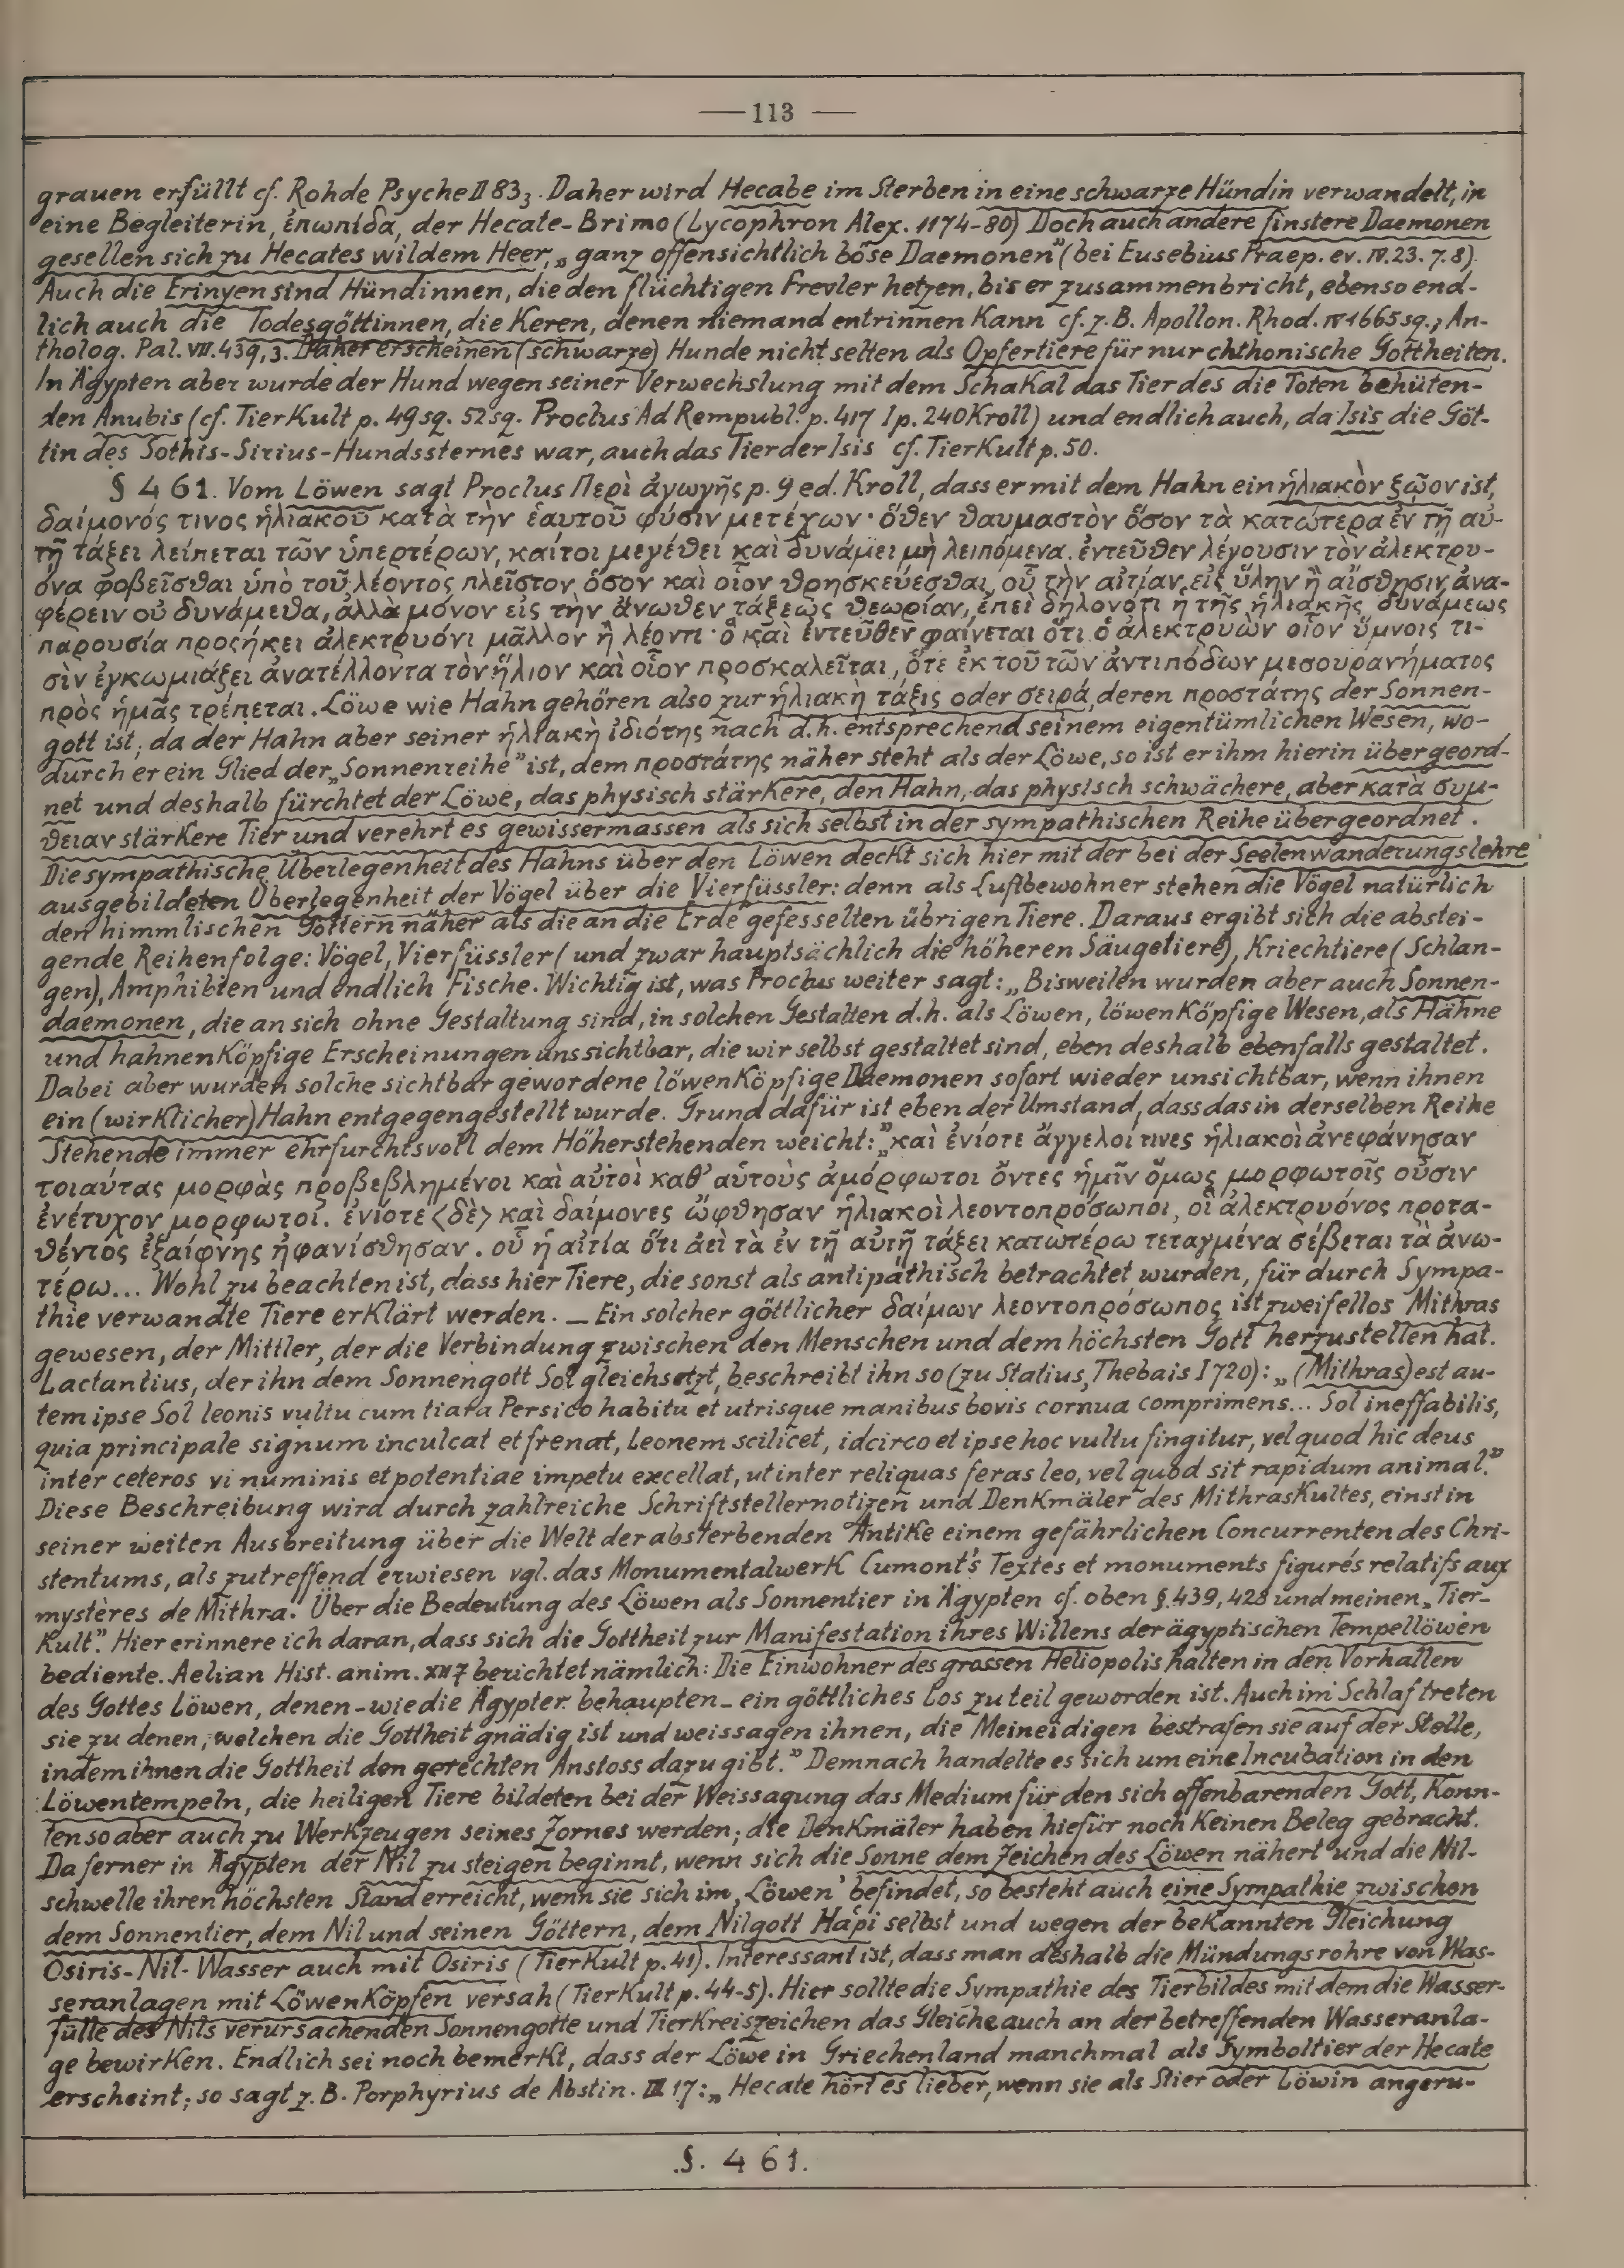 — 113 —
grauen erfüllt cf. Rohde Psyche II 83₃. Daher wird Hecabe im Sterben in eine schwarze Hündin verwandelt, in
eine Begleiterin, ἑπωπίδα, der Hecate-Brimo (Lycophron Alex. 1174-80) Doch auch andere finstere Daemonen
gesellen sich zu Hecates wildem Heer, „ganz offensichtlich böse Daemonen" (bei Eusebius Praep. ev. IV. 23. 7. 8).
Auch die Erinyen sind Hündinnen, die den flüchtigen Frevler hetzen, bis er zusammenbricht, ebenso end-
lich auch die Todesgöttinnen, die Keren, denen niemand entrinnen Kann cf. z. B. Apollon. Rhod. IV 1665 sq.; An-
tholog. Pal. VII. 439, 3. Daher erscheinen (schwarze) Hunde nicht selten als Opfertiere für nur chthonische Gottheiten.
In Ägypten aber wurde der Hund wegen seiner Verwechslung mit dem SchaKal das Tier des die Toten behüten-
den Anubis (cf. TierKult p. 49 sq. 52 sq. Proclus Ad Rempubl. p. 417 I p. 240 Kroll) und endlich auch, da Isis die Göt-
tin des Sothis-Sirius-Hundssternes war, auch das Tier der Isis cf. TierKult p. 50.
§ 461. Vom Löwen sagt Proclus Περὶ ἀγωγῆς p. 9 ed. Kroll, dass er mit dem Hahn ein ἡλιακὸν ζῷον ist,
δαίμονός τινος ἡλιακοῦ κατὰ τὴν ἑαυτοῦ φύσιν μετέχων· ὅθεν θαυμαστὸν ὅσον τὰ κατώτερα ἐν τῇ αὐ-
τῇ τάξει λείπεται τῶν ὑπερτέρων, καίτοι μεγέθει καὶ δυνάμει μὴ λειπόμενα. ἐντεῦθεν λέγουσιν τὸν ἀλεκτρυ-
όνα φοβεῖσθαι ὑπὸ τοῦ λέοντος πλεῖστον ὅσον καὶ οἷον θρησκεύεσθαι, οὗ τὴν αἰτίαν εἰς ὕλην ἢ αἴσθησιν ἀνα-
φέρειν οὐ δυνάμεθα, ἀλλὰ μόνον εἰς τὴν ἄνωθεν τάξεως θεωρίαν, ἐπεὶ δηλονότι ἡ τῆς ἡλιακῆς δυνάμεως
παρουσία προσήκει ἀλεκτρυόνι μᾶλλον ἢ λέοντι· ὃ καὶ ἐντεῦθεν φαίνεται ὅτι ὁ ἀλεκτρυὼν οἷον ὕμνοις τι-
σὶν ἐγκωμιάζει ἀνατέλλοντα τὸν ἥλιον καὶ οἷον προσκαλεῖται, ὅτε ἐκ τοῦ τῶν ἀντιπόδων μεσουρανήματος
πρὸς ἡμᾶς τρέπεται. Löwe wie Hahn gehören also zur ἡλιακὴ τάξις oder σειρά, deren προστάτης der Sonnen-
gott ist; da der Hahn aber seiner ἡλιακὴ ἰδιότης nach d. h. entsprechend seinem eigentümlichen Wesen, wo-
durch er ein Glied der „Sonnenreihe" ist, dem προστάτης näher steht als der Löwe, so ist er ihm hierin übergeord-
net und deshalb fürchtet der Löwe, das physisch stärKere, den Hahn, das physisch schwächere, aber κατὰ συμ-
θειαν stärkere Tier und verehrt es gewissermassen als sich selbst in der sympathischen Reihe übergeordnet.
Die sympathische Überlegenheit des Hahns über den Löwen decKt sich hier mit der bei der Seelenwanderungslehre
ausgebildeten Überlegenheit der Vögel über die Vierfüssler: denn als Luftbewohner stehen die Vögel natürlich
den himmlischen Göttern näher als die an die Erde gefesselten übrigen Tiere. Daraus ergibt sich die abstei-
gende Reihenfolge: Vögel, Vierfüssler (und zwar hauptsächlich die höheren Säugetiere), Kriechtiere (Schlan-
gen), Amphibien und endlich Fische. Wichtig ist, was Proclus weiter sagt: „Bisweilen wurden aber auch Sonnen-
daemonen, die an sich ohne Gestaltung sind, in solchen Gestalten d. h. als Löwen, löwenKöpfige Wesen, als Hähne
und hahnenKöpfige Erscheinungen uns sichtbar, die wir selbst gestaltet sind, eben deshalb ebenfalls gestaltet.
Dabei aber wurden solche sichtbar gewordene löwenKöpfige Daemonen sofort wieder unsichtbar, wenn ihnen
ein (wirKlicher) Hahn entgegengestellt wurde. Grund dafür ist eben der Umstand, dass das in derselben Reihe
Stehende immer ehrfurchtsvoll dem Höherstehenden weicht:" „καὶ ἐνίοτε ἄγγελοί τινες ἡλιακοὶ ἀνεφάνησαν
τοιαύτας μορφὰς προβεβλημένοι καὶ αὐτοὶ καθ' αὑτοὺς ἀμόρφωτοι ὄντες ἡμῖν ὅμως μορφωτοῖς οὖσιν
ἐνέτυχον μορφωτοί. ἐνίοτε <δὲ> καὶ δαίμονες ὤφθησαν ἡλιακοὶ λεοντοπρόσωποι, οἳ ἀλεκτρυόνος προτα-
θέντος ἐξαίφνης ἠφανίσθησαν. οὗ ἡ αἰτία ὅτι ἀεὶ τὰ ἐν τῇ αὐτῇ τάξει κατωτέρω τεταγμένα σέβεται τὰ ἀνω-
τέρω... Wohl zu beachten ist, dass hier Tiere, die sonst als antipathisch betrachtet wurden, für durch Sympa-
thie verwandte Tiere erKlärt werden. — Ein solcher göttlicher δαίμων λεοντοπρόσωπος ist zweifellos Mithras
gewesen, der Mittler, der die Verbindung zwischen den Menschen und dem höchsten Gott herzustellen hat.
Lactantius, der ihn dem Sonnengott Sol gleichsetzt, beschreibt ihn so (zu Statius, Thebais I 720): „(Mithras) est au-
tem ipse Sol leonis vultu cum tiara Persico habitu et utrisque manibus bovis cornua comprimens... Sol ineffabilis,
quia principale signum inculcat et frenat, Leonem scilicet, idcirco et ipse hoc vultu fingitur, vel quod hic deus
inter ceteros vi numinis et potentiae impetu excellat, ut inter reliquas feras leo, vel quod sit rapidum animal."
Diese Beschreibung wird durch zahlreiche Schriftstellernotizen und DenKmäler des MithrasKultes, einst in
seiner weiten Ausbreitung über die Welt der absterbenden AntiKe einem gefährlichen Concurrenten des Chri-
stentums, als zutreffend erwiesen vgl. das MonumentalwerK Cumont's Textes et monuments figurés relatifs aux
mystères de Mithra. Über die Bedeutung des Löwen als Sonnentier in Ägypten cf. oben §. 439, 428 und meinen „Tier-
Kult". Hier erinnere ich daran, dass sich die Gottheit zur Manifestation ihres Willens der ägyptischen Tempellöwen
bediente. Aelian Hist. anim. XII 7 berichtet nämlich: Die Einwohner des grossen Heliopolis halten in den Vorhallen
des Gottes Löwen, denen - wie die Ägypter behaupten - ein göttliches Los zu teil geworden ist. Auch im Schlaf treten
sie zu denen, welchen die Gottheit gnädig ist und weissagen ihnen, die Meineidigen bestrafen sie auf der Stelle,
indem ihnen die Gottheit den gerechten Anstoss dazu gibt." Demnach handelte es sich um eine Incubation in den
Löwentempeln, die heiligen Tiere bildeten bei der Weissagung das Medium für den sich offenbarenden Gott, Konn-
ten so aber auch zu WerKzeugen seines Zornes werden; die DenKmäler haben hiefür noch Keinen Beleg gebracht.
Da ferner in Ägypten der Nil zu steigen beginnt, wenn sich die Sonne dem Zeichen des Löwen nähert und die Nil-
schwelle ihren höchsten Stand erreicht, wenn sie sich im ‚Löwen' befindet, so besteht auch eine Sympathie zwischen
dem Sonnentier, dem Nil und seinen Göttern, dem Nilgott Hapi selbst und wegen der beKannten Gleichung
Osiris-Nil-Wasser auch mit Osiris (TierKult p. 41). Interessant ist, dass man deshalb die Mündungsrohre von Was-
seranlagen mit LöwenKöpfen versah (TierKult p. 44-5). Hier sollte die Sympathie des Tierbildes mit dem die Wasser-
fülle des Nils verursachenden Sonnengotte und TierKreiszeichen das Gleiche auch an der betreffenden Wasseranla-
ge bewirKen. Endlich sei noch bemerKt, dass der Löwe in Griechenland manchmal als Symboltier der Hecate
erscheint; so sagt z. B. Porphyrius de Abstin. III 17: „Hecate hört es lieber, wenn sie als Stier oder Löwin angeru-
§. 461.